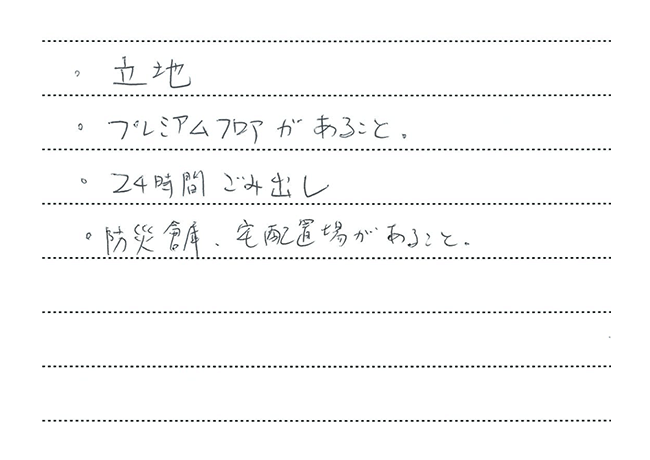 。立地
。プレミアムフロアがあること。
。24時間ごみ出し
。防災倉庫、宅配置場があること。